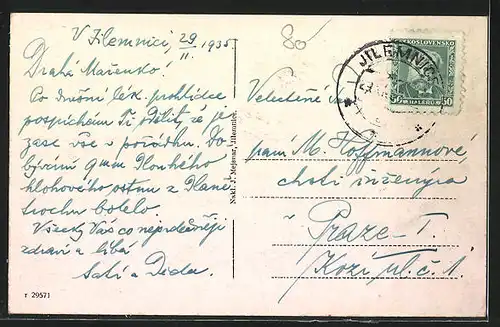 V Jilemnici 29/II. 1935
80
Drahá Mařenko!
Po dnešní lék. prohlídce
pospíchám Ti sdělit, že je
zase vše v pořádku. Do-
bývání 9 mm Dlouhého
hlohového ostnu z Dlane
trochu bolelo.
Všecky Vás co nejsrdečněji
zdraví a líbá
a Děda.
Velectěné
paní M. Hoffmannové,
choti inženýra
v Praze - I.
Kozí ul. č. 1.
JILEMNICE
ČESKOSLOVENSKO
50 HALÉŘŮ 50
Nakl. J. Mejsnar, Jilemnice.
r 29571